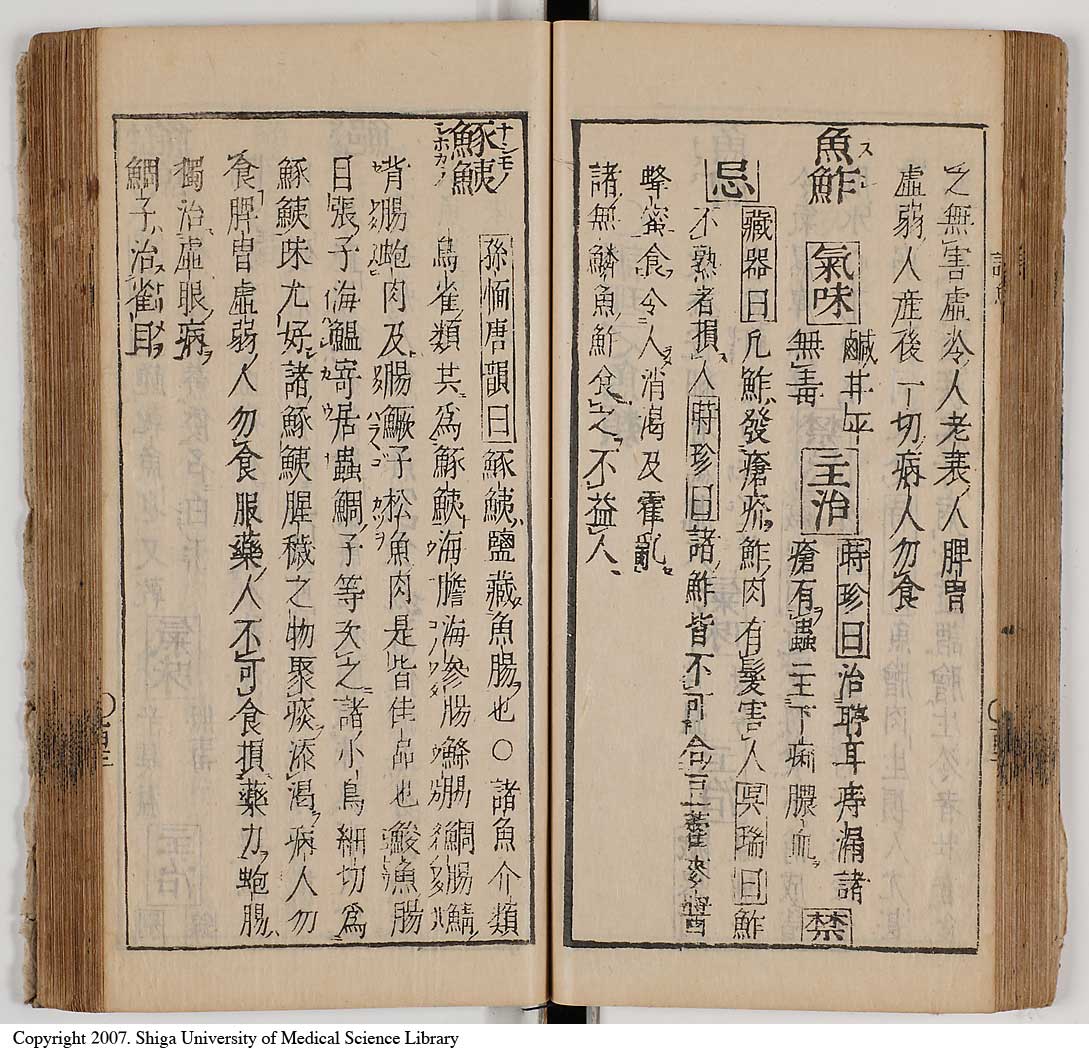 之無害虛冷人老衰人脾胃
虛弱人産後一切病人勿食
魚鮓 氣味 鹹甘平無毒 主治 時珍曰治聤耳痔漏諸瘡有蟲主下痢膿血 禁
忌 藏器曰凡鮓發瘡疥鮓肉有髮害人吳瑞曰鮓
不熟者損人時珍曰諸鮓皆不可合豆藿麥醬
蜂蜜食令人消渴及霍亂
諸無鱗魚鮓食之不益人
鯸鮧 孫愐唐韻曰鯸鮧鹽藏魚腸也〇諸魚介類
鳥雀類共爲鯸鮧海膽海參腸鯛腸鯖
背腸鮑肉及腸鱖子松魚肉是皆佳品也鮫漁腸
目張子海鰮寄居蟲鯛子等次之諸小鳥細切爲
鯸鮧味尤好諸鯸鮧腥穢之物聚痰添渴病人勿
食脾胃虛弱人勿食服藥人不可食損藥力鮑腸
獨治虛眼病
鯛子治雀目
Copyright 2007. Shiga University of Medical Science Library